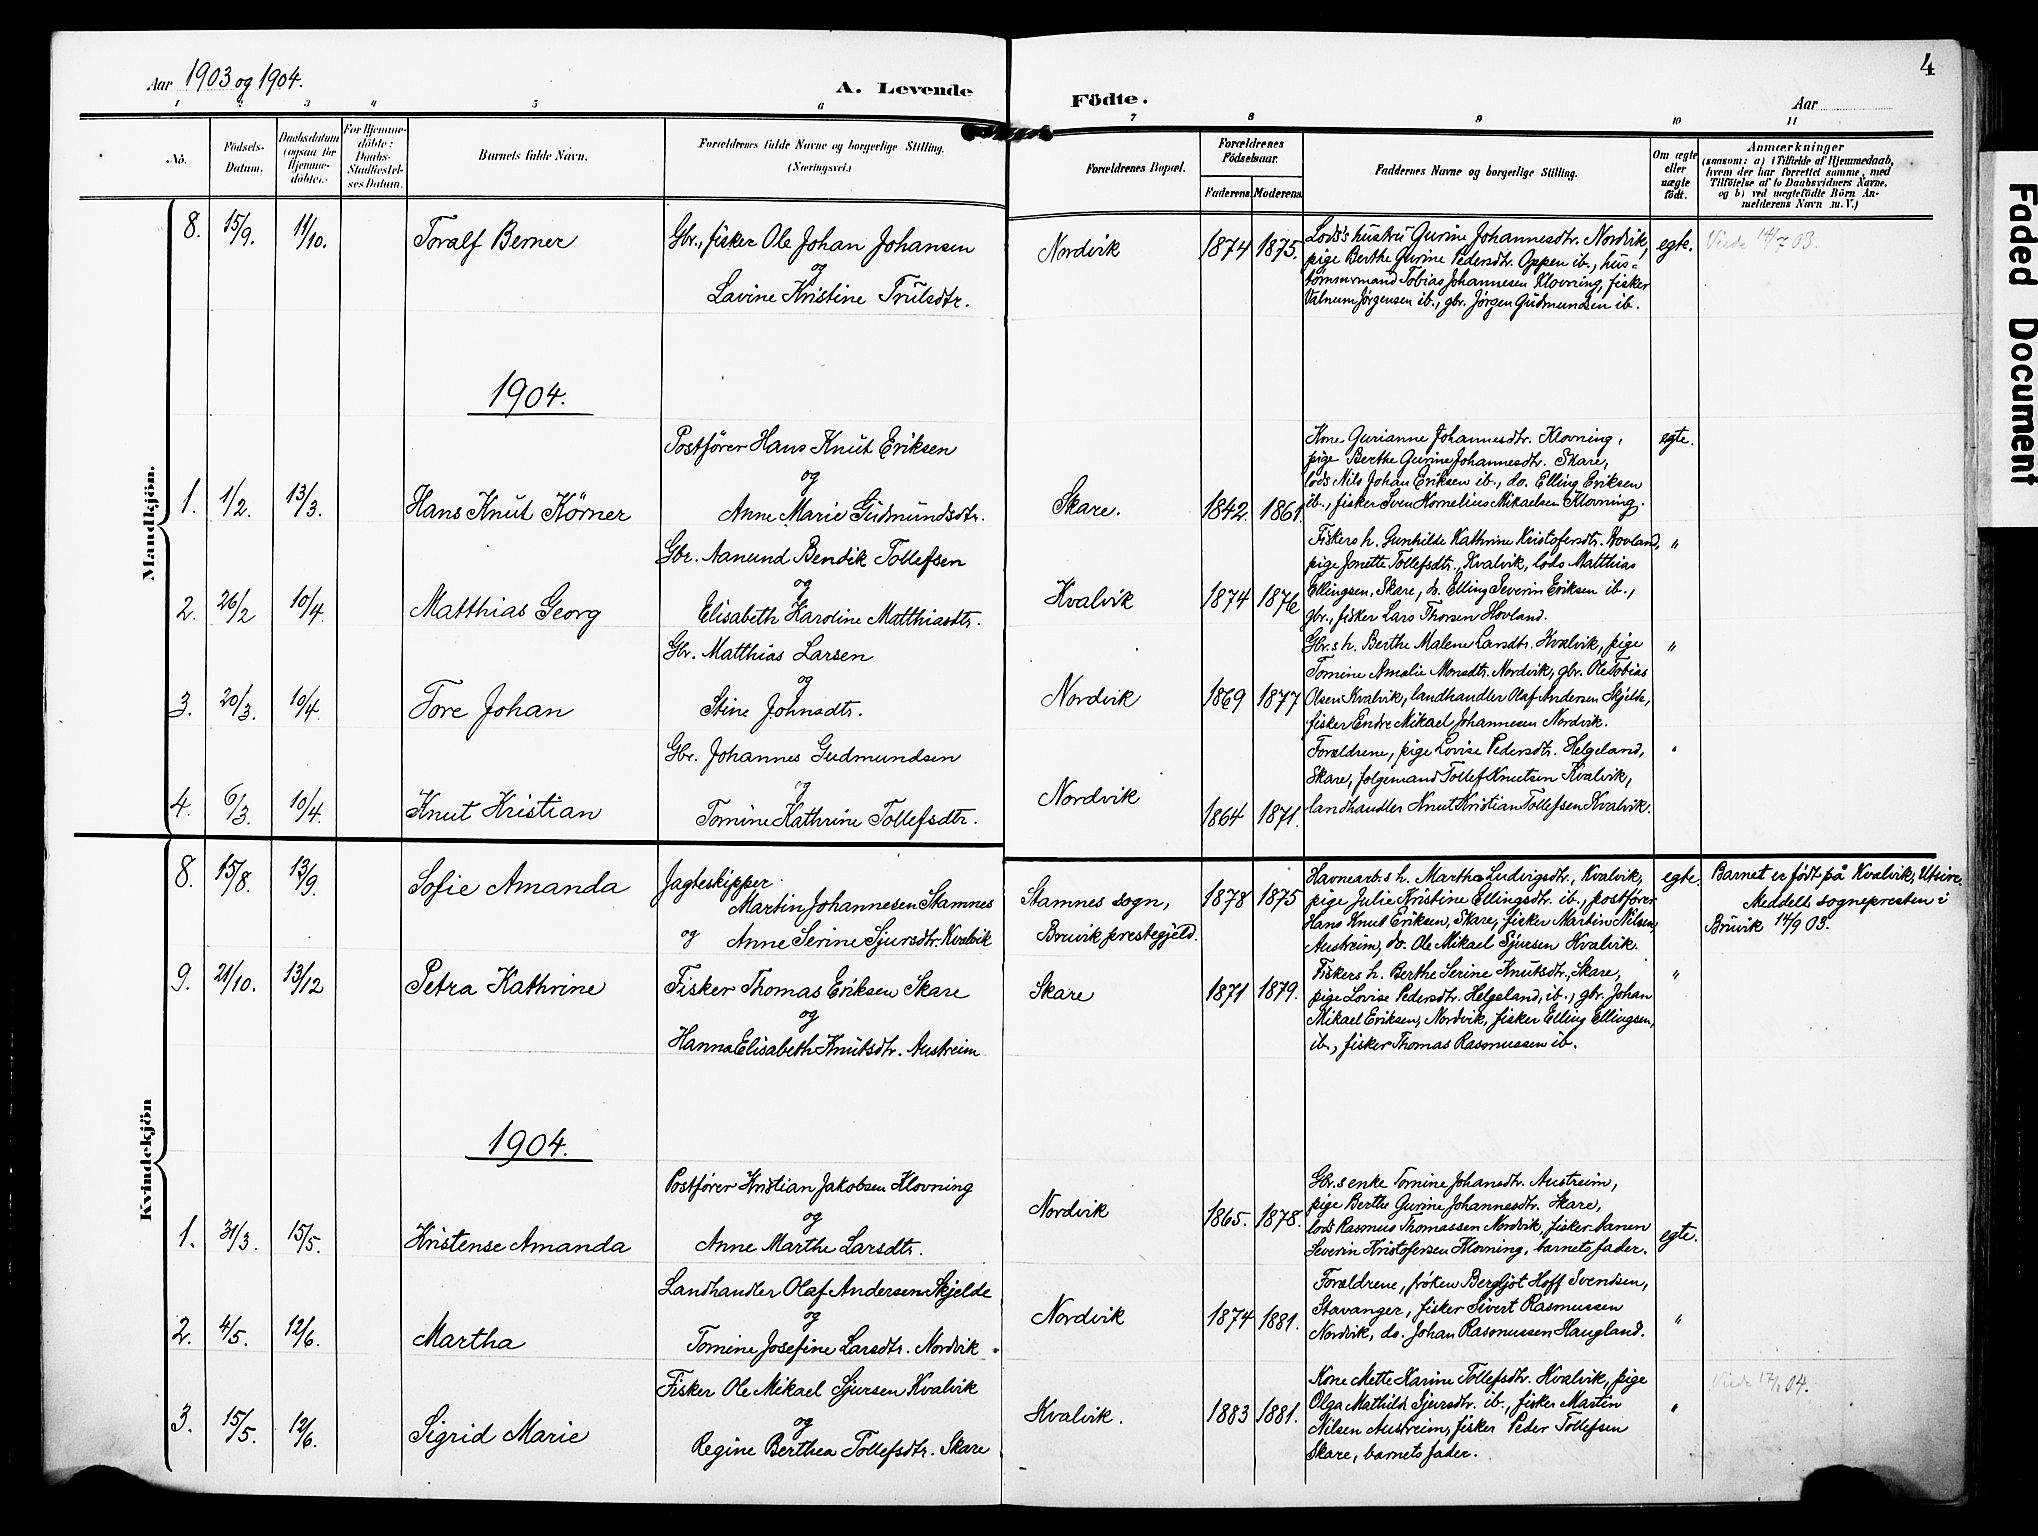 4
Aar 1903 og 1904.
A. Levende Födte.
Aar
1 2 3 4 5 6 7 8 9 10 11
No.
Födsels-
Datum.
Daabsdatum
(ogsaa for
Hjemme-
döbte).
For Hjemme-
döbte:
Daabs-
Stadfæstel-
ses Datum.
Barnets fulde Navn.
Forældrenes fulde Navne og borgerlige Stilling.
(Næringsvei.)
Forældrenes Bopæl.
Forældrenes
Födselsaar.
Faderens.
Moderens.
Faddernes Navne og borgerlige Stilling.
Om ægte
eller
uægte
født.
Anmærkninger
(saasom: a) i Tilfælde af Hjemmedaab,
hvem der har forrettet samme, med
Tilföielse af to Daabsvidners Navne,
og b) ved uægtefödte Börn An-
melderens Navn m. V.)
Mandkjön.
8. 15/9. 11/10. Toralf Berner
Gbr., fisker Ole Johan Johansen
og
Lavine Kristine Trulsdtr.
Nordvik 1874 1875.
Lods's hustru Gurine Johannesdtr. Nordvik,
pige Berthe Gurine Pedersdtr. Oppen ib., hus=
tømmermand Tobias Johannesen Klovning, fisker
Valnum Jørgensen ib., gbr. Jørgen Gudmundsen ib.
egte.
Viede 14/7 03.
1904.
1. 1/2. 13/3. Hans Knut Körner
Postfører Hans Knut Eriksen
og
Anne Marie Gudmundsdtr.
Skare. 1842. 1861.
Kone Gurianne Johannesdtr. Klovning,
pige Berthe Gurine Johannesdtr. Skare,
lods Nils Johan Eriksen ib., do. Elling Eriksen
ib., fisker Sven Kornelius Mikaelsen Klovning.
egte.
2. 26/2 10/4. Matthias Georg
Gbr. Aanund Bendik Tollefsen
og
Elisabeth Karoline Matthiasdtr.
Kvalvik 1874 1876
Fiskers h. Gunhilde Kathrine Kristofersdtr. Hovland,
pige Jonette Tollefsdtr., Kvalvik, lods Matthias
Ellingsen, Skare, do. Elling Severin Eriksen ib.,
gbr., fisker Lars Thorsen Hovland.
"
3. 20/3. 10/4. Tore Johan
Gbr. Matthias Larsen
og
Stine Johnsdtr.
Nordvik 1869 1877
Gbr.s h. Berthe Malene Larsdtr. Kvalvik, pige
Tomine Amalie Monsdtr. Nordvik, gbr. Ole Tobias
Olsen Kvalvik, landhandler Olaf Andersen Skjelde,
fisker Endre Mikael Johannesen Nordvik.
"
4. 6/3. 10/4. Knut Kristian
Gbr. Johannes Gudmundsen
og
Tomine Kathrine Tollefsdtr.
Nordvik 1864 1871.
Forældrene, pige Lovise Pedersdtr. Helgeland,
Skare, folgemand Tollef Knutsen Kvalvik,
landhandler Knut Kristian Tollefsen Kvalvik.
"
Kvindekjön
8. 15/8. 13/9. Sofie Amanda
Jagteskipper
Martin Johannesen Stamnes
og Anne Serine Sjursdtr. Kvalvik
Stamnes sogn,
Bruvik prestegjeld.
1878 1875
Havnearb.s h. Martha Ludvigsdtr., Kvalvik,
pige Julie Kristine Ellingsdtr. ib., postfører
Hans Knut Eriksen, Skare, fisker Martin Nilsen,
Austreim, do. Ole Mikael Sjursen Kvalvik.
egte.
Barnet er født på Kvalvik, Utsire.
Meddelt sognepresten i
Bruvik 14/9 03.
9. 21/10. 13/12 Petra Kathrine
Fisker Thomas Eriksen Skare
og
Hanna Elisabeth Knutsdtr. Austreim
Skare 1871 1879.
Fiskers h. Berthe Serine Knutsdtr., Skare,
pige Lovise Pedersdtr. Helgeland, ib., gbr. Johan
Mikael Eriksen, Nordvik, fisker Elling Ellingsen,
ib., fisker Thomas Rasmussen ib.
"
1904.
1. 31/3. 15/5. Kristense Amanda
Postfører Kristian Jakobsen Klovning
og
Anne Marthe Larsdtr.
Nordvik 1865. 1878.
Gbr.s enke Tomine Johansdtr. Austreim,
pige Berthe Gurine Johannesdtr. Skare,
lods Rasmus Thomassen Nordvik, fisker
Severin Kristofersen Klovning, barnets fader.
egte.
2. 4/5. 12/6. Martha
Landhandler Olaf Andersen Skjelde
og
Tomine Josefine Larsdtr. Nordvik
Nordvik 1874 1881.
Forældrene, frøken Bergljot Hoff Svendsen,
Stavanger, fisker Sivert Rasmussen
Nordvik, do. Johan Rasmussen Haugland.
"
3. 15/5. 12/6. Sigrid Marie
Fisker Ole Mikael Sjursen Kvalvik
og
Regine Berthea Tollefsdtr. Skare
Kvalvik. 1883 1881.
Kone Mette Karine Tollefsdtr. Kvalvik, pige
Olga Mathilde Sjursdtr. ib., fisker Martin
Nilsen Austreim, fisker Peder Tollefsen
Skare, barnets fader.
"
Viede 17/1 04.
Faded Document